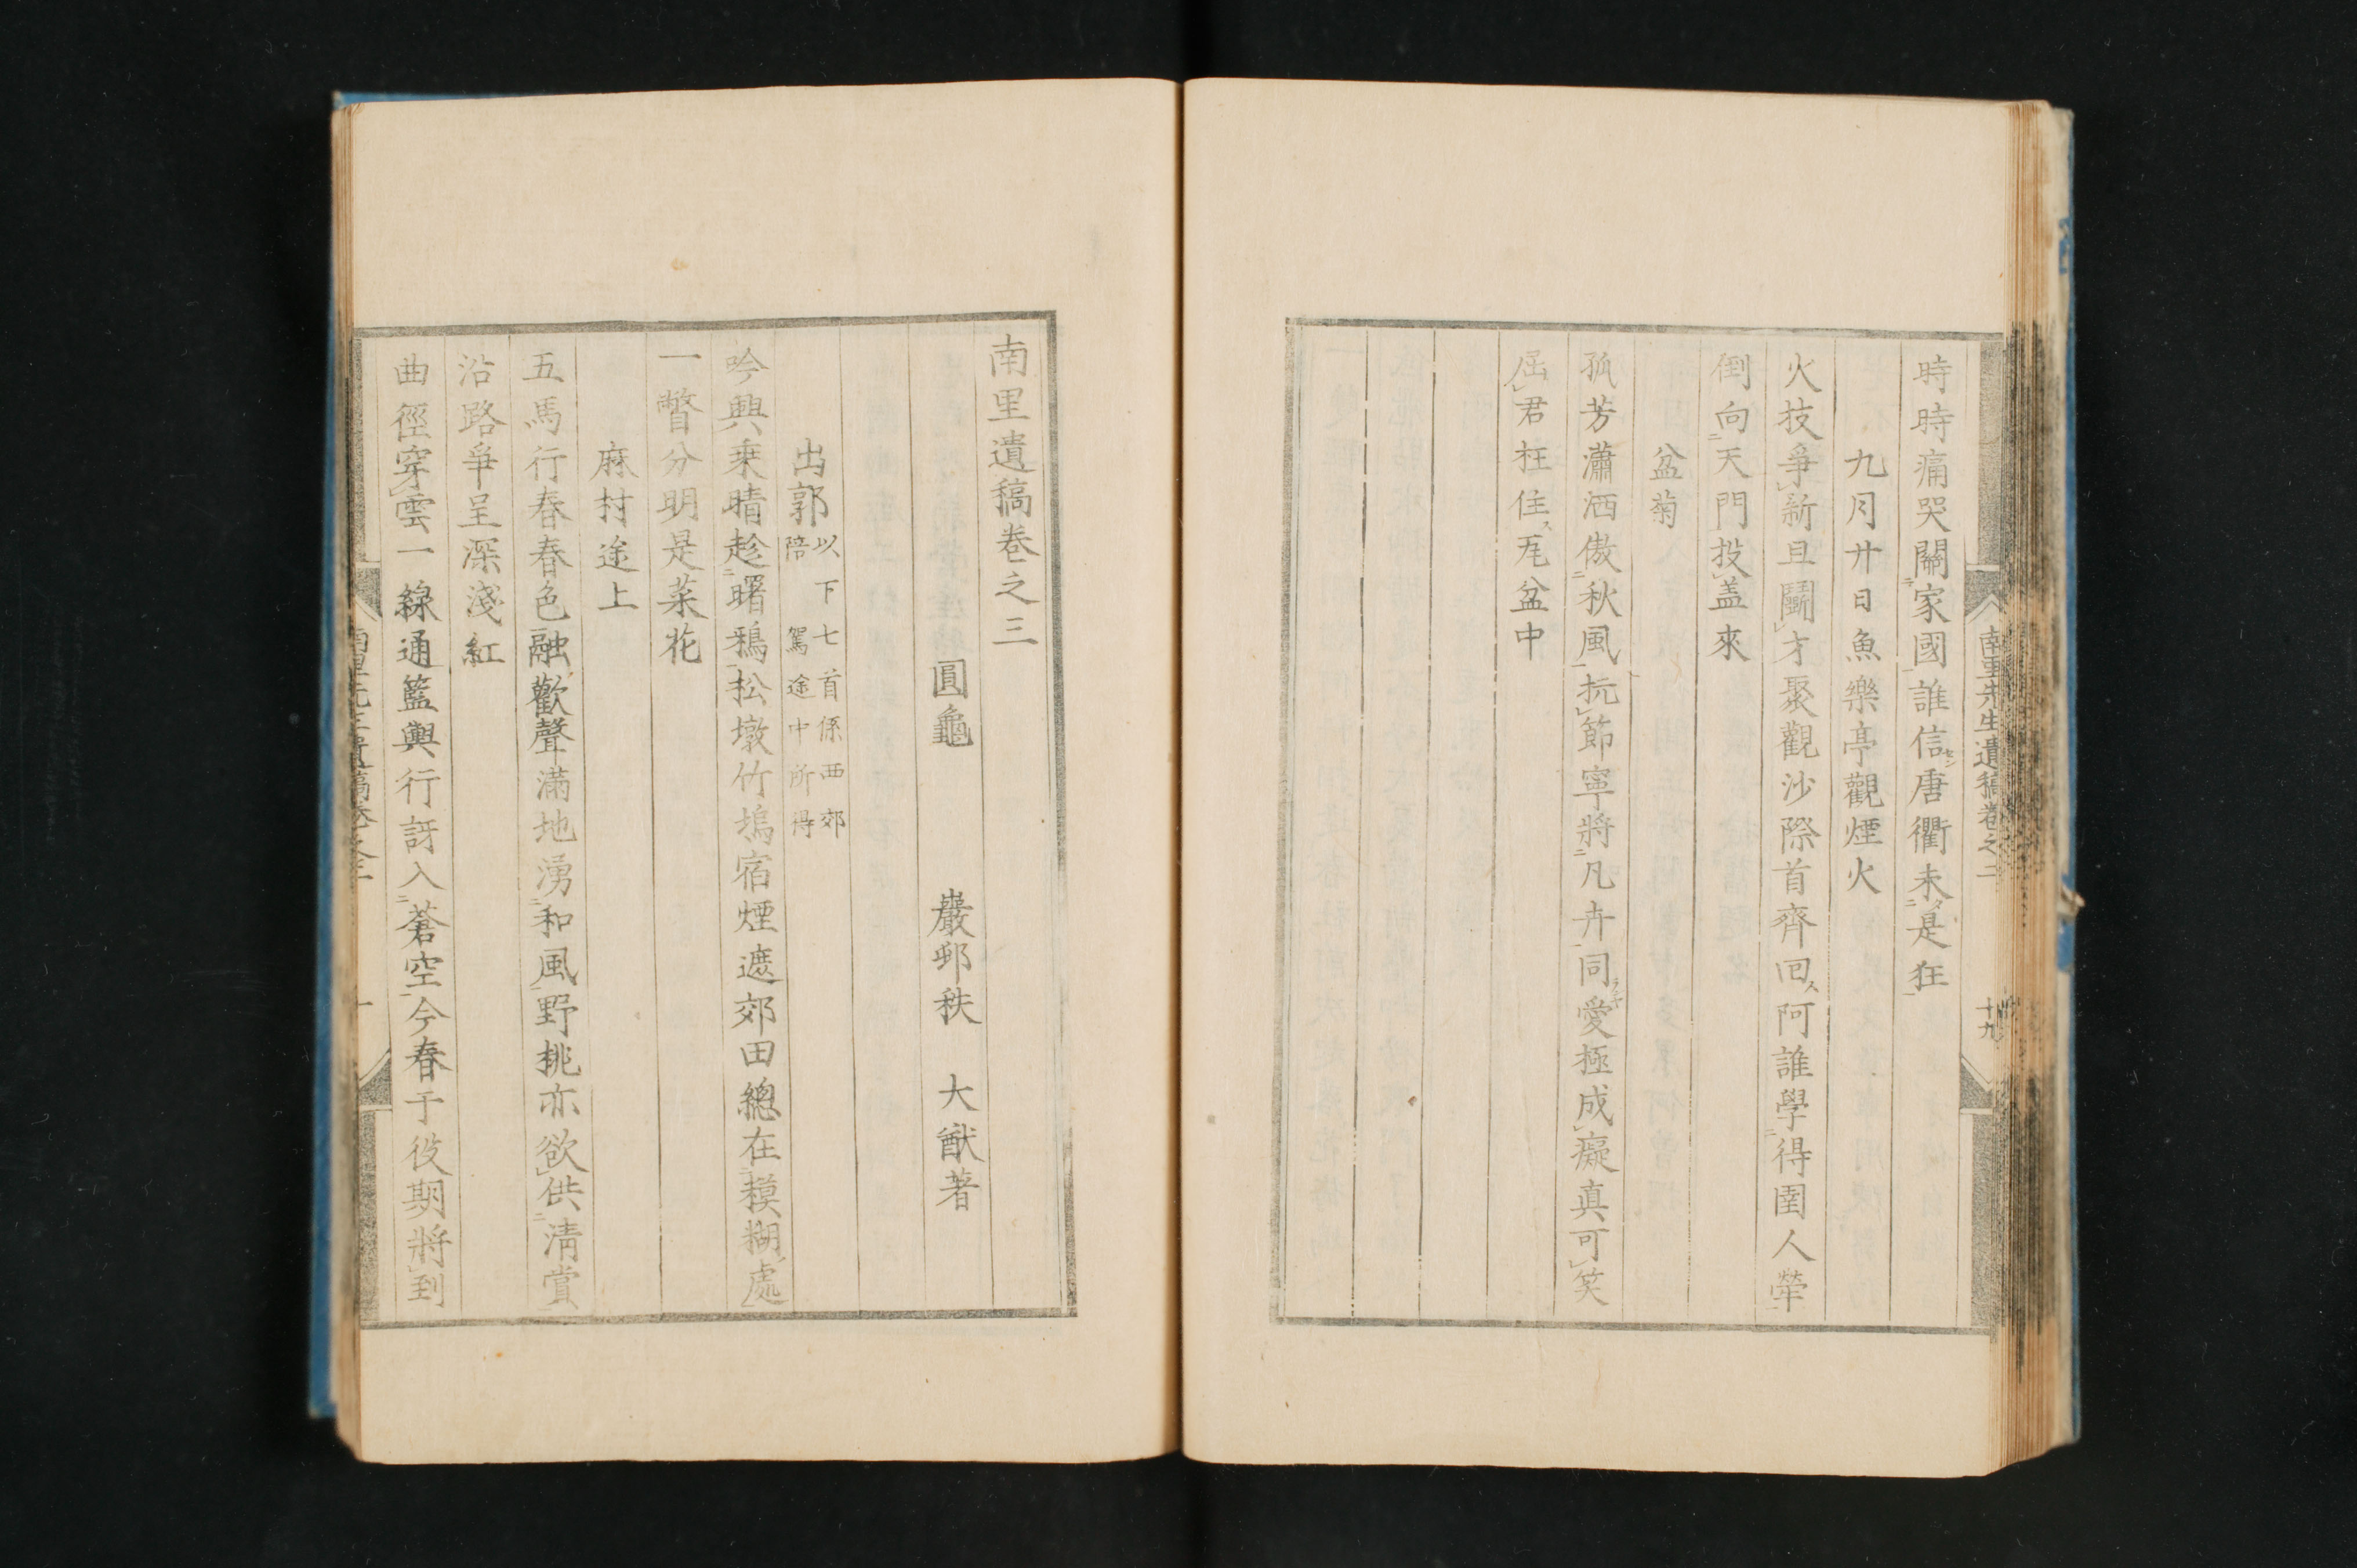 南里先生遺稿卷之二
十九
時時痛哭關家國誰信唐衢未是狂
九月廿日魚樂亭觀煙火
火技爭新且鬪才聚觀沙際首齊回阿誰學得圉人犖
倒向天門投盖來
盆菊
孤芳瀟洒傲秋風抗節寧將凡卉同愛極成癡真可笑
屈君枉住瓦盆中
南里遺稿卷之三
圓龜 巖邨秩 大猷著
出郭 以下七首係西郊
陪駕途中所得
吟興乘晴趁曙鴉松墩竹塢宿煙遮郊田總在模糊處
一瞥分明是菜花
麻村途上
五馬行春春色融歡聲滿地湧和風野桃亦欲供淸賞
沿路爭呈深淺紅
曲徑穿雲一線通籃輿行訝入蒼空今春于役期將到